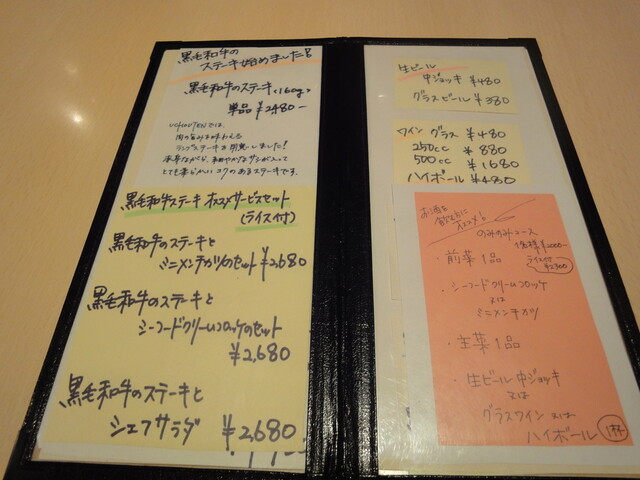 黒毛和牛の
ステーキ始めました!!
黒毛和牛のステーキ(160g)
単品 ¥2480-
UCHOUTENでは、
肉の旨みを味わえる
ランプステーキを用意しました!
赤身ながら、細やかなサシが入って
とても柔らかいコクのあるステーキです。
黒毛和牛ステーキ オススメサービスセット
(ライス付)
黒毛和牛のステーキと
ミニメンチカツのセット ¥2,680
黒毛和牛のステーキと
シーフードクリームコロッケのセット
¥2,680
黒毛和牛のステーキと
シェフサラダ ¥2680
生ビール
中ジョッキ ¥480
グラスビール ¥380
ワイン グラス ¥480
250cc ¥880
500cc ¥1680
ハイボール ¥480
お酒を
飲む方に
オススメ!
のみのみコース
1名様 ¥2000-
・前菜1品
ライス付
¥2300
・シーフードクリームコロッケ
又は
ミニメンチカツ
・主菜1品
・生ビール中ジョッキ
又は
グラスワイン 又は
ハイボール 1杯